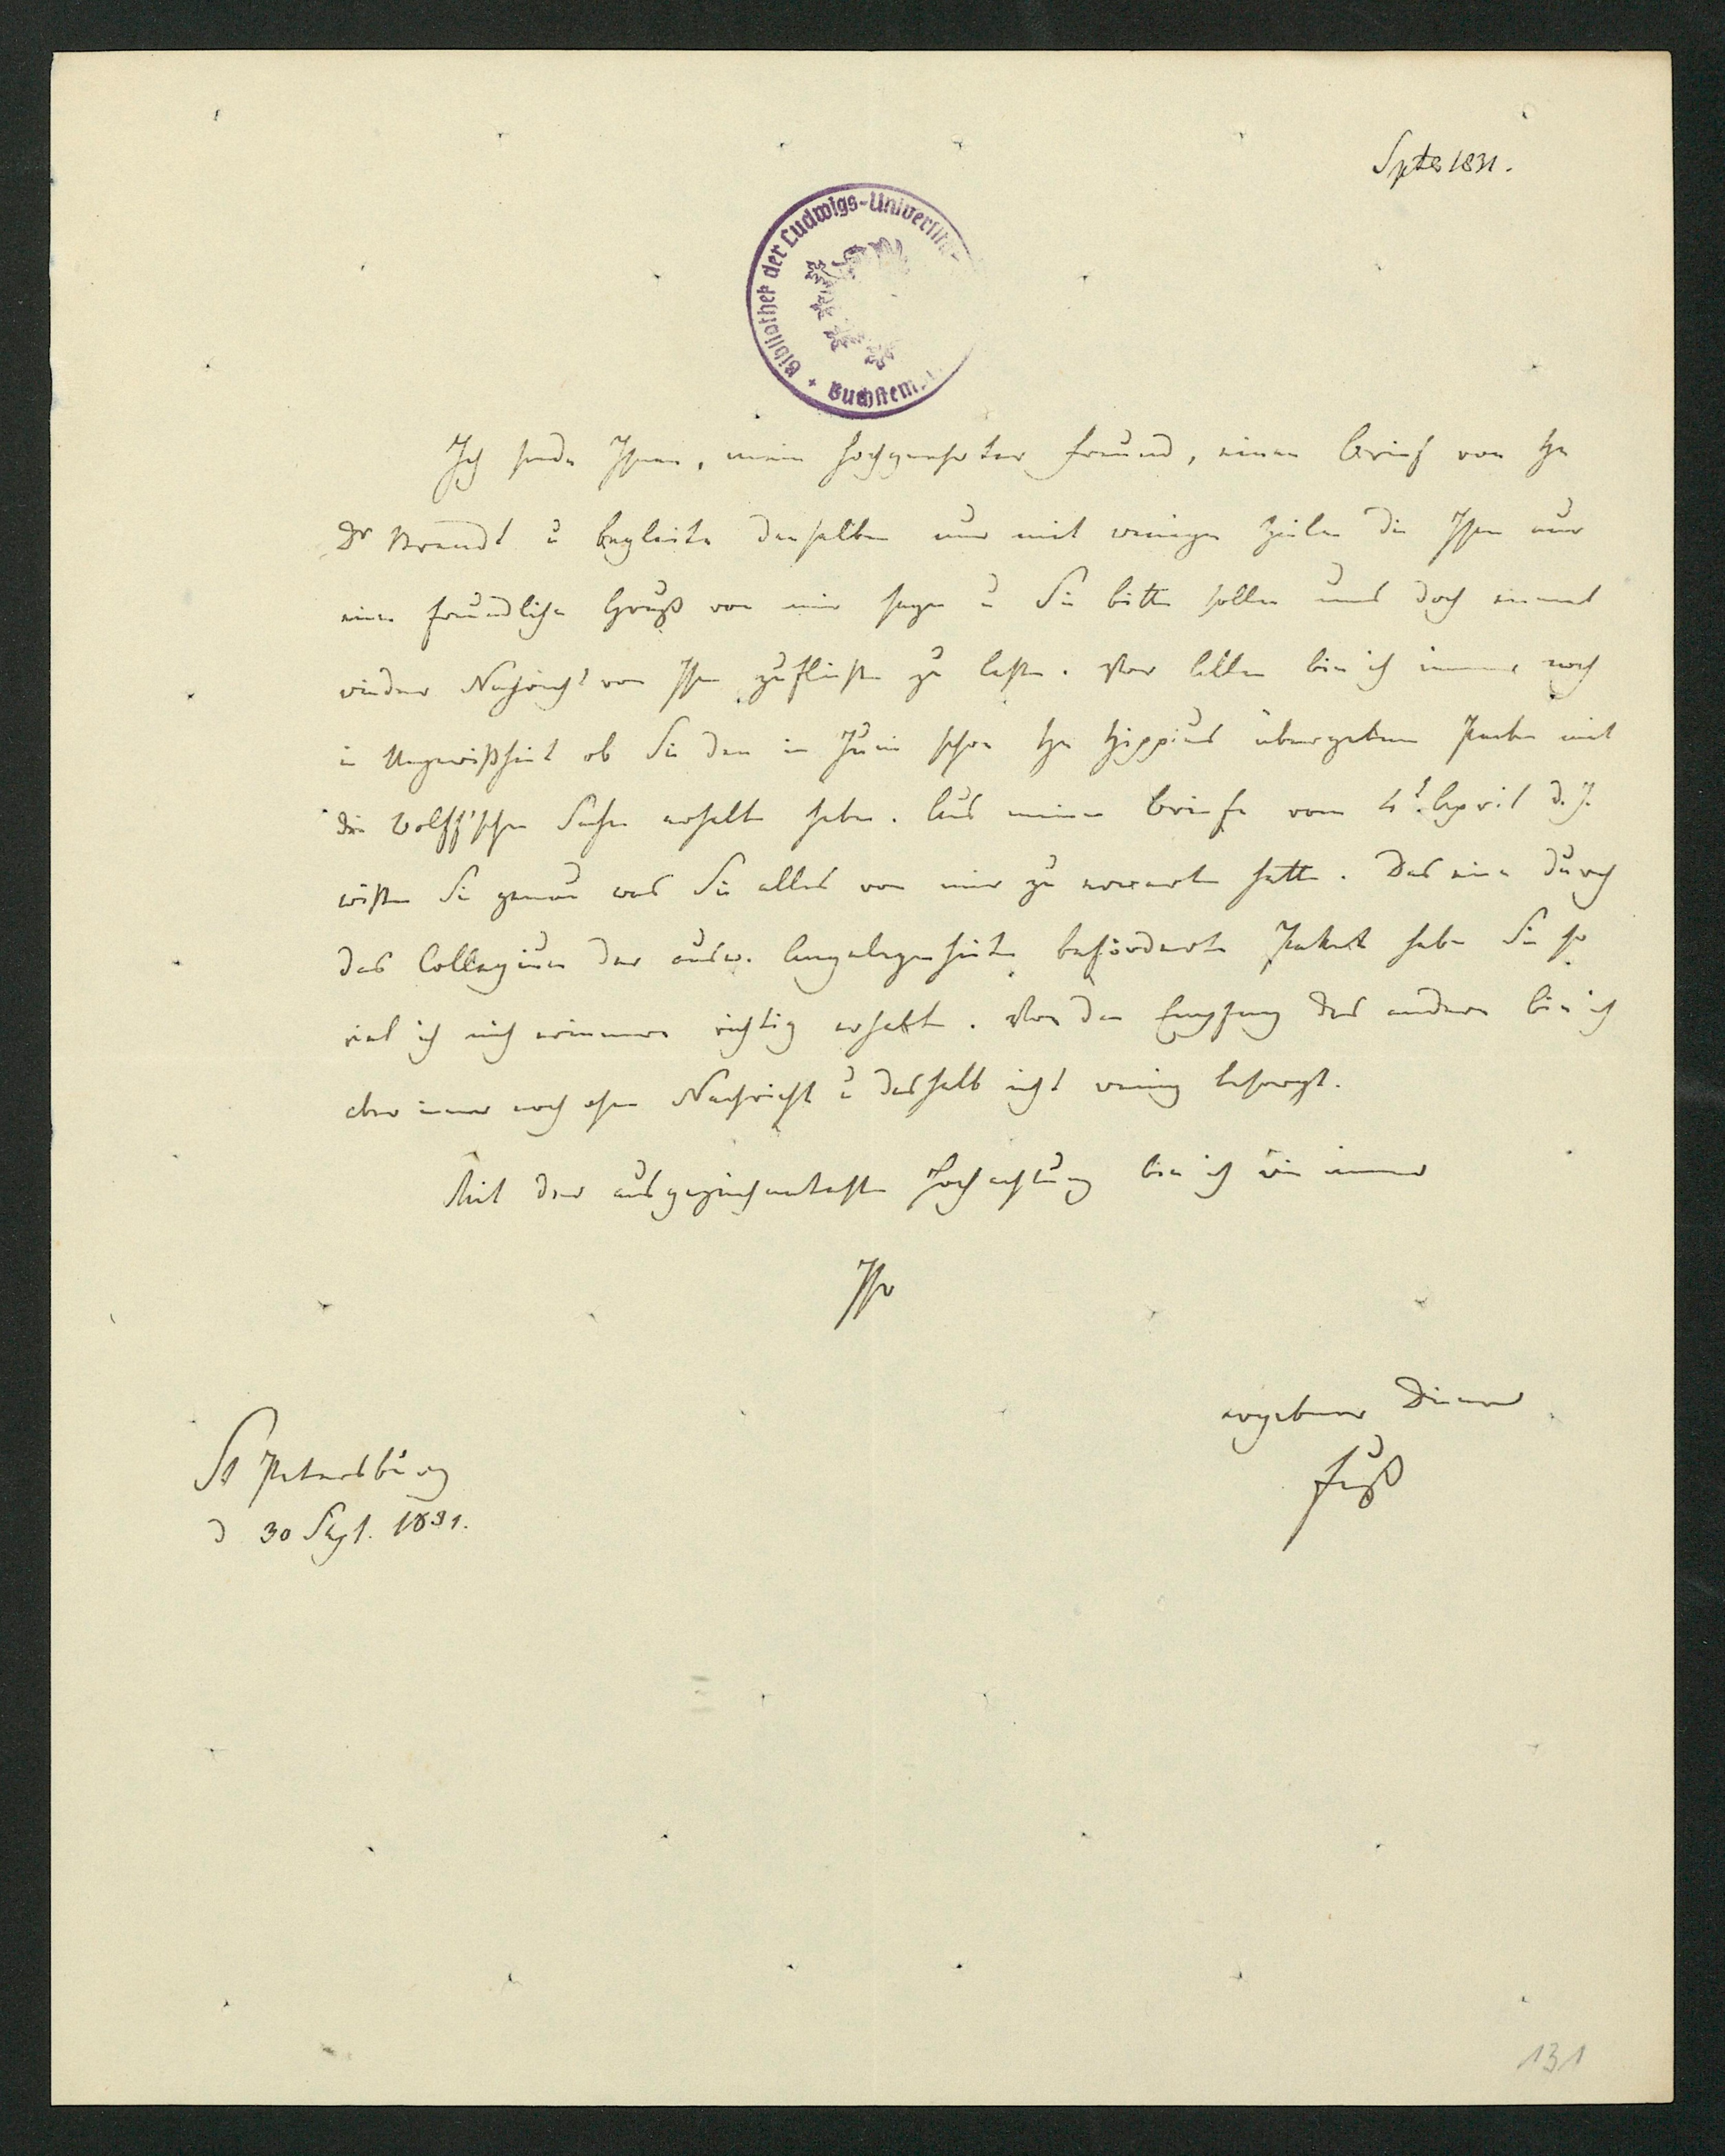 Sptbr 1831.
Bibliothek der Ludwigs-Universität
Buchstem
Ich sende Ihnen, mein hochgeehrter Freund, einen Brief von Hn
Dr Brandt u begleite denselben nur mit wenigen Zeilen die Ihnen nur
einen freundlichen Gruß von mir sagen u Sie bitten sollen uns doch einmal
wieder Nachricht von Ihnen zufließen zu lassen. Vor Allem bin ich immer noch
in Ungewißheit ob Sie den im Juni schon Hn Hippius übergebenen Packen mit
den Wolff'schen Sachen erhalten haben. Aus meinem Briefe vom 4t April d. J.
wissen Sie genau was Sie alles von mir zu erwarten hatten. Das eine durch
das Collegium der ausw. Angelegenheiten beförderte Paket haben Sie so
viel ich mich erinnere richtig erhalten. Von dem Empfang des anderen bin ich
aber immer noch ohne Nachricht u deshalb nicht wenig besorgt.
Mit der ausgezeichnetesten Hochachtung bin ich wie immer
Ihr
ergebener Diener
Fuß
St Petersburg
d 30 Sept. 1831.
131